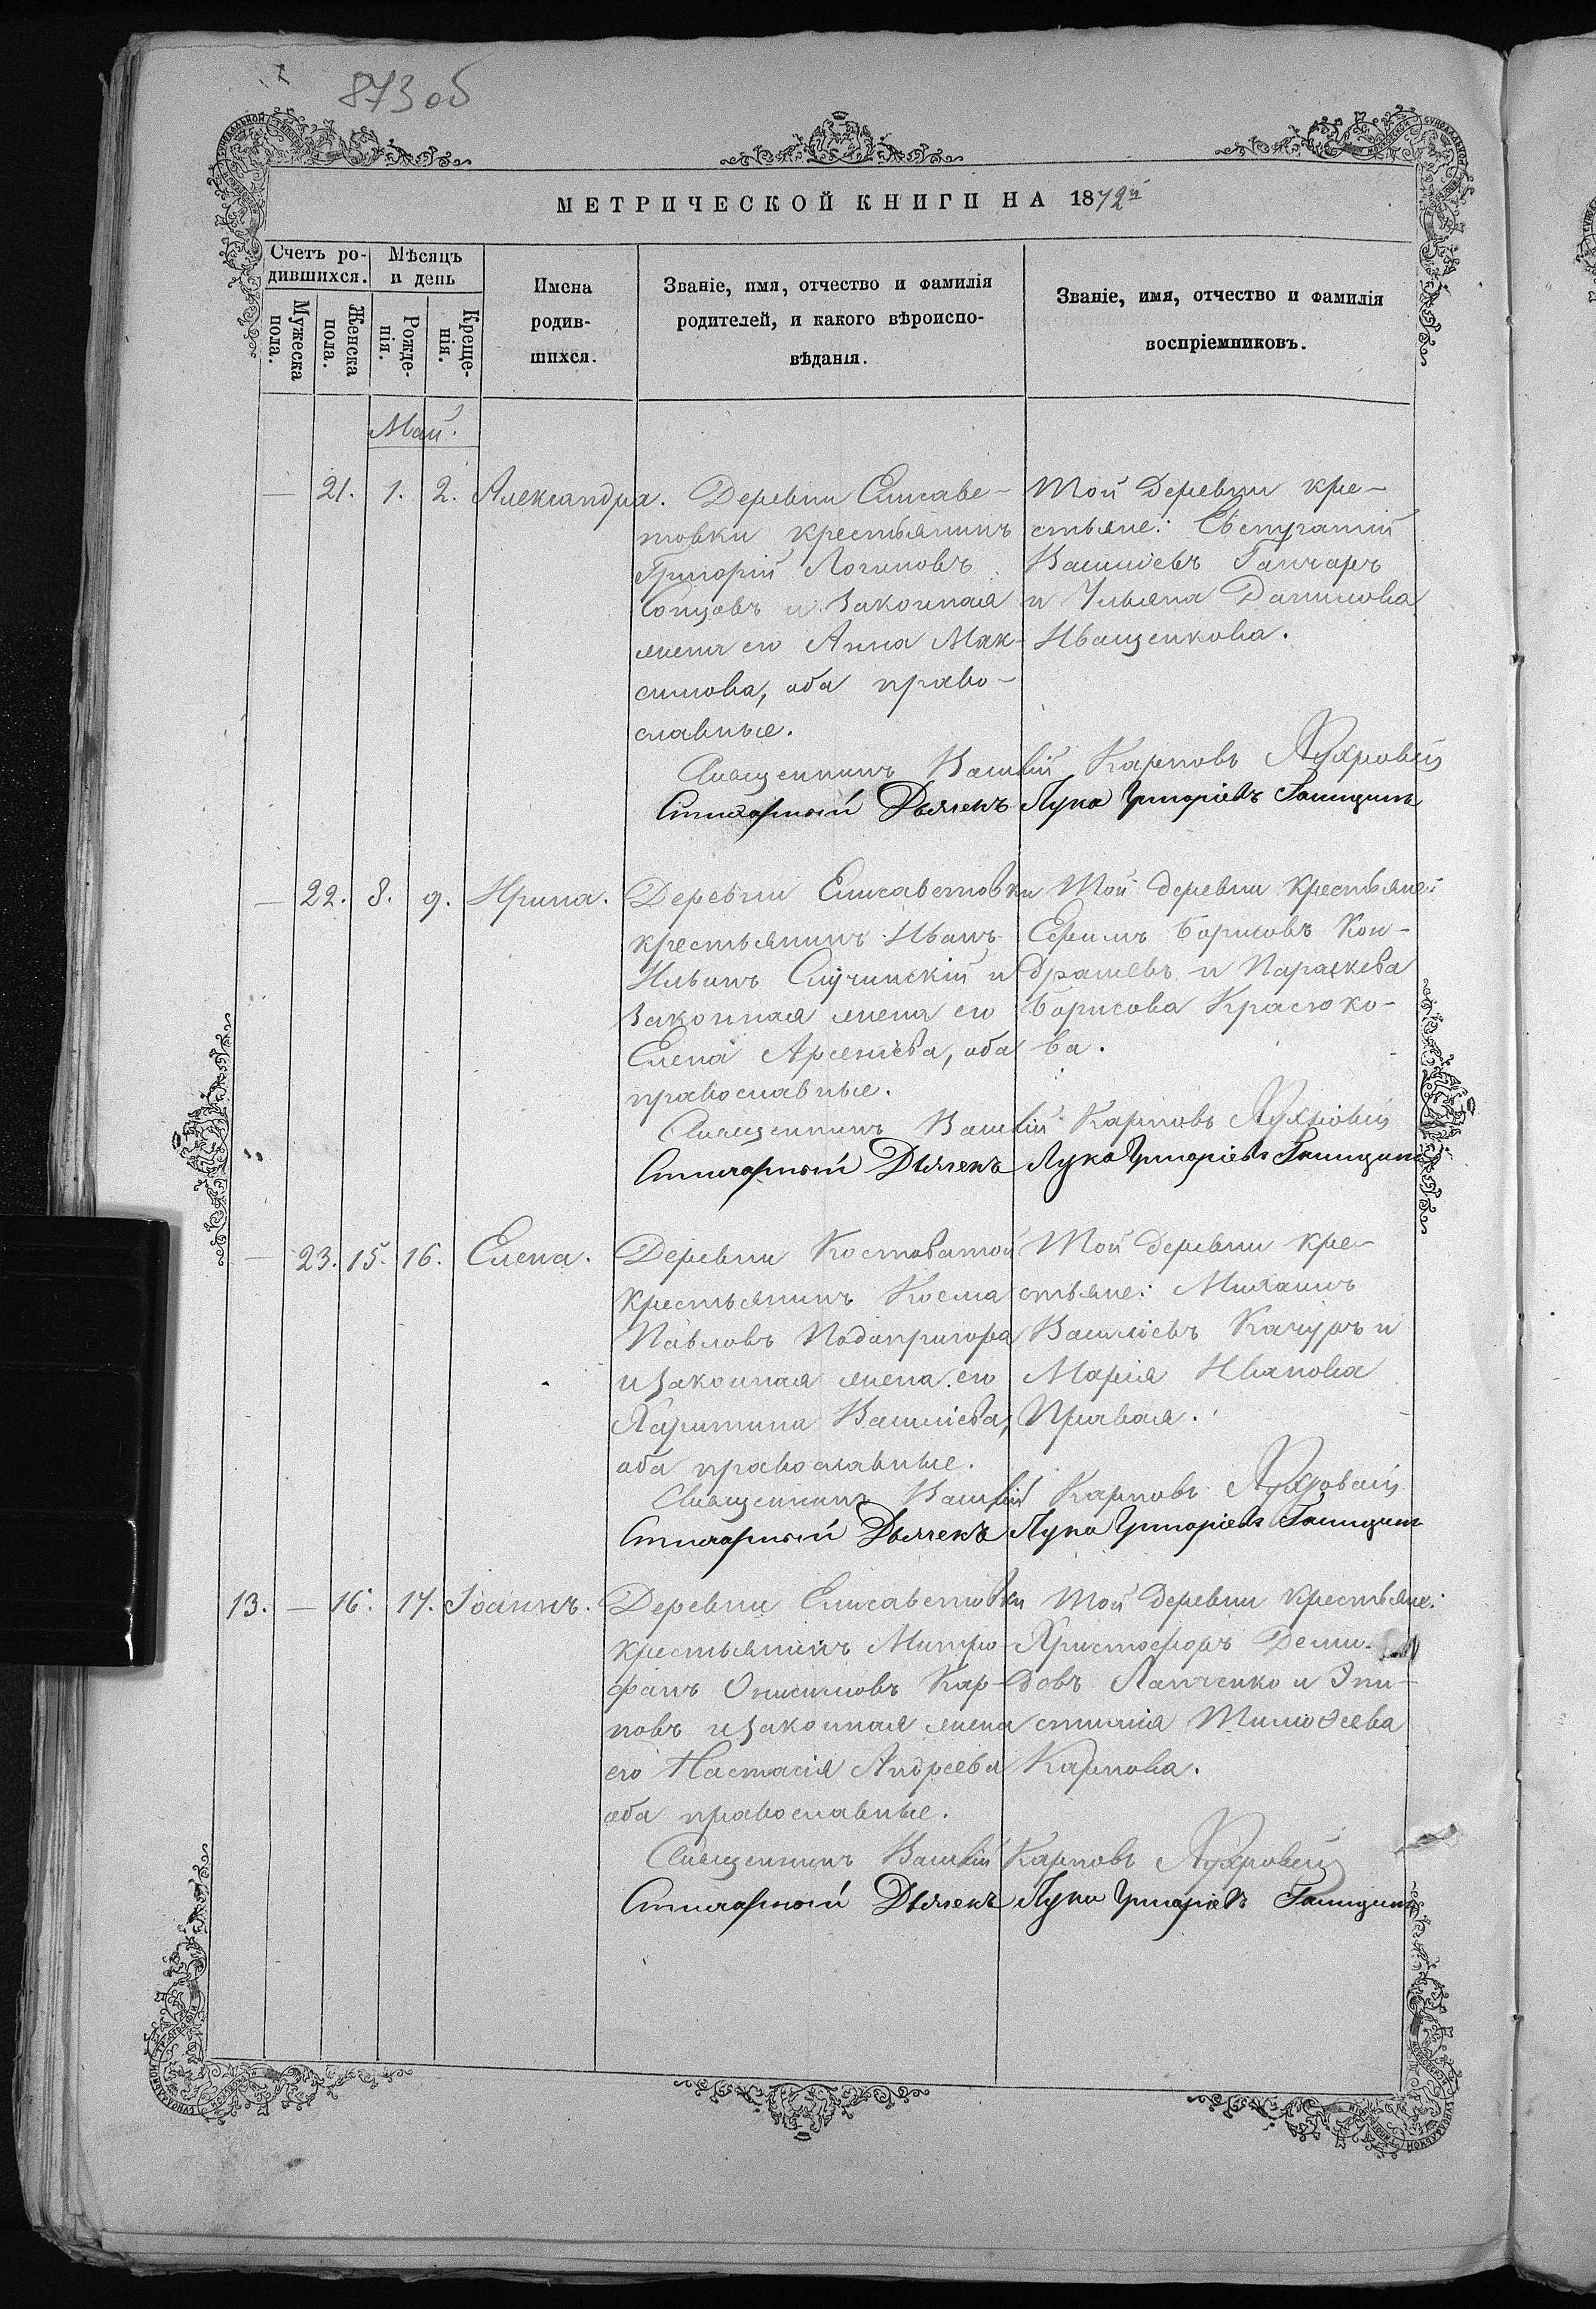 873 об
МЕТРИЧЕСКОЙ КНИГИ НА 1872й
Счетъ ро-
дившихся.
Мужеска
пола.
Женска
пола.
Мѣсяцъ
и день
Рожде-
нія.
Креще-
нія.
Имена
родив-
шихся.
Званіе, имя, отчество и фамилія
родителей, и какого вѣроиспо-
вѣданія.
Званіе, имя, отчество и фамилія
воспріемниковъ.
Май.
— 21. 1. 2. Александра.
Деревни Елисаве-
товки крестьянинъ
Григорій Логиновъ
и законная
жена его Анна Мак-
симова, оба право-
славные.
Той деревни кре-
стьяне: Евстратій
Василіевъ Ганчаръ
и Ульяна Данилова
Иващенкова.
Священникъ Василій Карповъ
Стихарный Дьячекъ Лука Григоріевъ
— 22. 8. 9. Ирина.
Деревни Елисаветовки
крестьянинъ Иванъ
Ильинъ Случинскій и
законная жена его
Елена Арсеніева, оба
православные.
Той деревни крестьяне:
Ефимъ Борисовъ Кон-
драшевъ и Параскева
Борисова Красюко-
ва.
Священникъ Василій Карповъ
Стихарный Дьячекъ Лука Григоріевъ
— 23. 15. 16. Елена.
Деревни Костоватой
крестьянинъ Косма
Павловъ Подопригора
и законная жена его
Харитина Василіева,
оба православные.
Той деревни кре-
стьяне: Михаилъ
Василіевъ Качуръ и
Марія Иванова
Священникъ Василій Карповъ
Стихарный Дьячекъ Лука Григоріевъ
13. — 16. 17. Іоаннъ.
Деревни Елисаветовки
крестьянинъ Митро-
фанъ Онисимовъ Кар-
повъ и законная жена
его Настасія Андреева
оба православные.
Той деревни крестьяне:
Христофоръ Деми-
довъ Панченко и Эпи-
стимія Тимоѳеева
Карпова.
Священникъ Василій Карповъ
Стихарный Дьячекъ Лука Григоріевъ